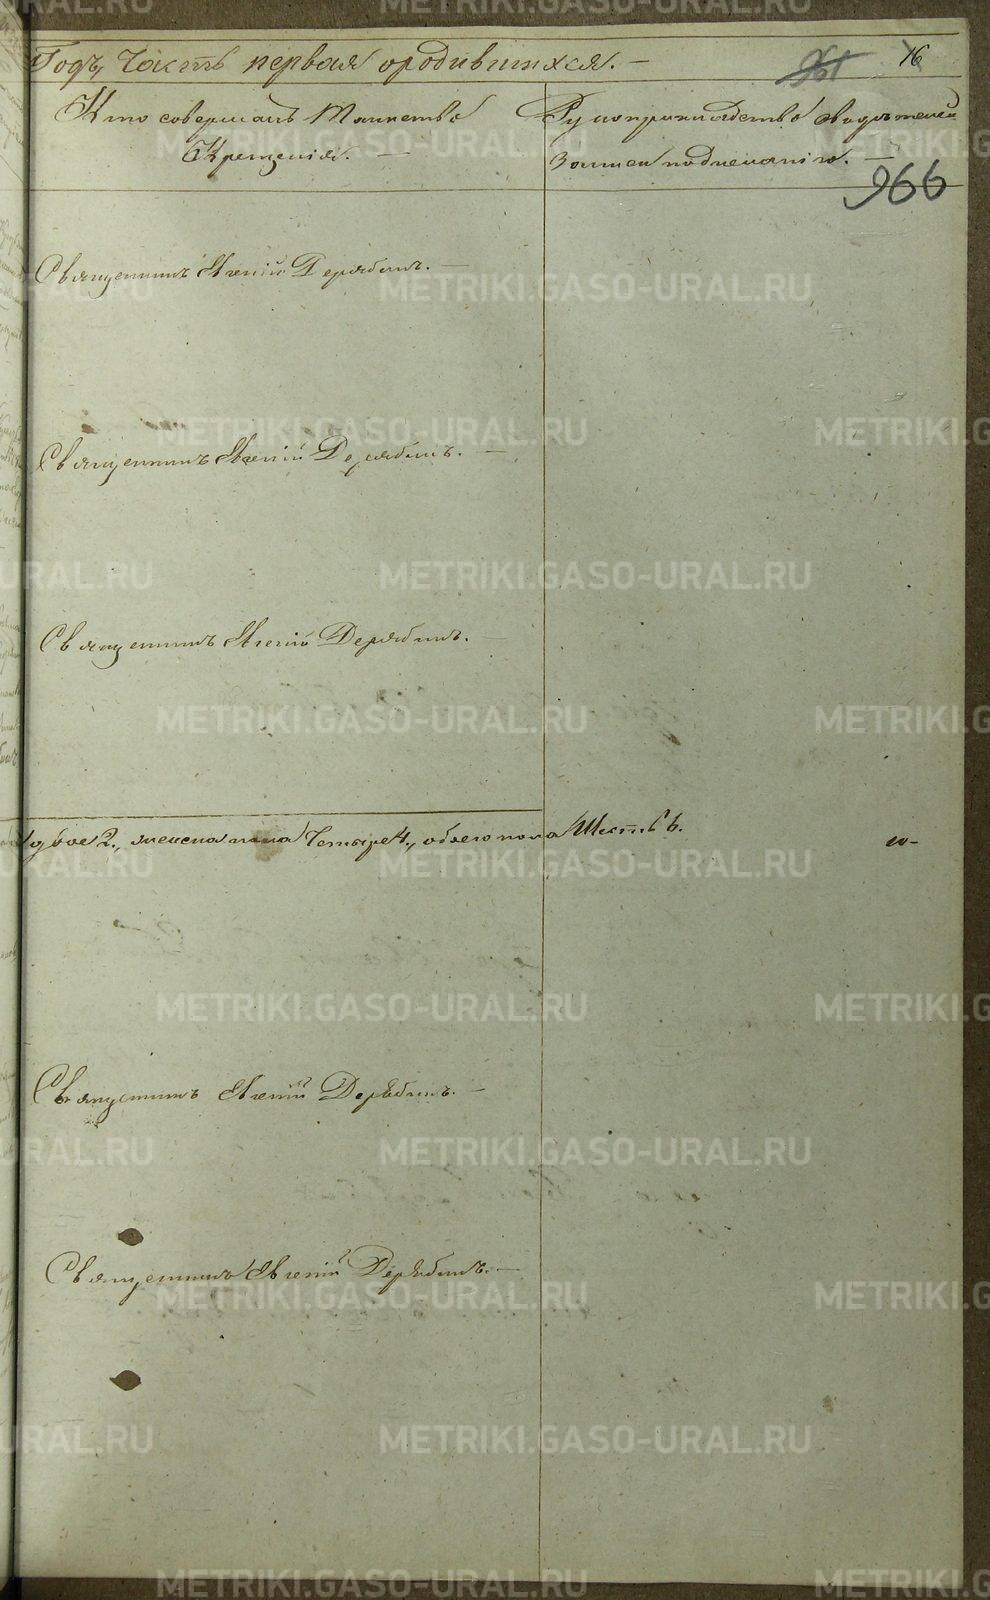 Годъ, Часть первая о родившихся. —
961 16
Кто совершалъ Таинство
Крещенія. —
Рукоприкладство свидѣтелей
Записи по желанію. —
966
Священникъ Евгеній Дерябинъ. —
Священникъ Евгеній Дерябинъ. —
Священникъ Евгеній Дерябинъ.
двое 2., женска пола Четыре 4., обоего пола Шесть 6.
Священникъ Евгеній Дерябинъ. —
Священникъ Евгеній Дерябинъ. —
METRIKI.GASO-URAL.RU